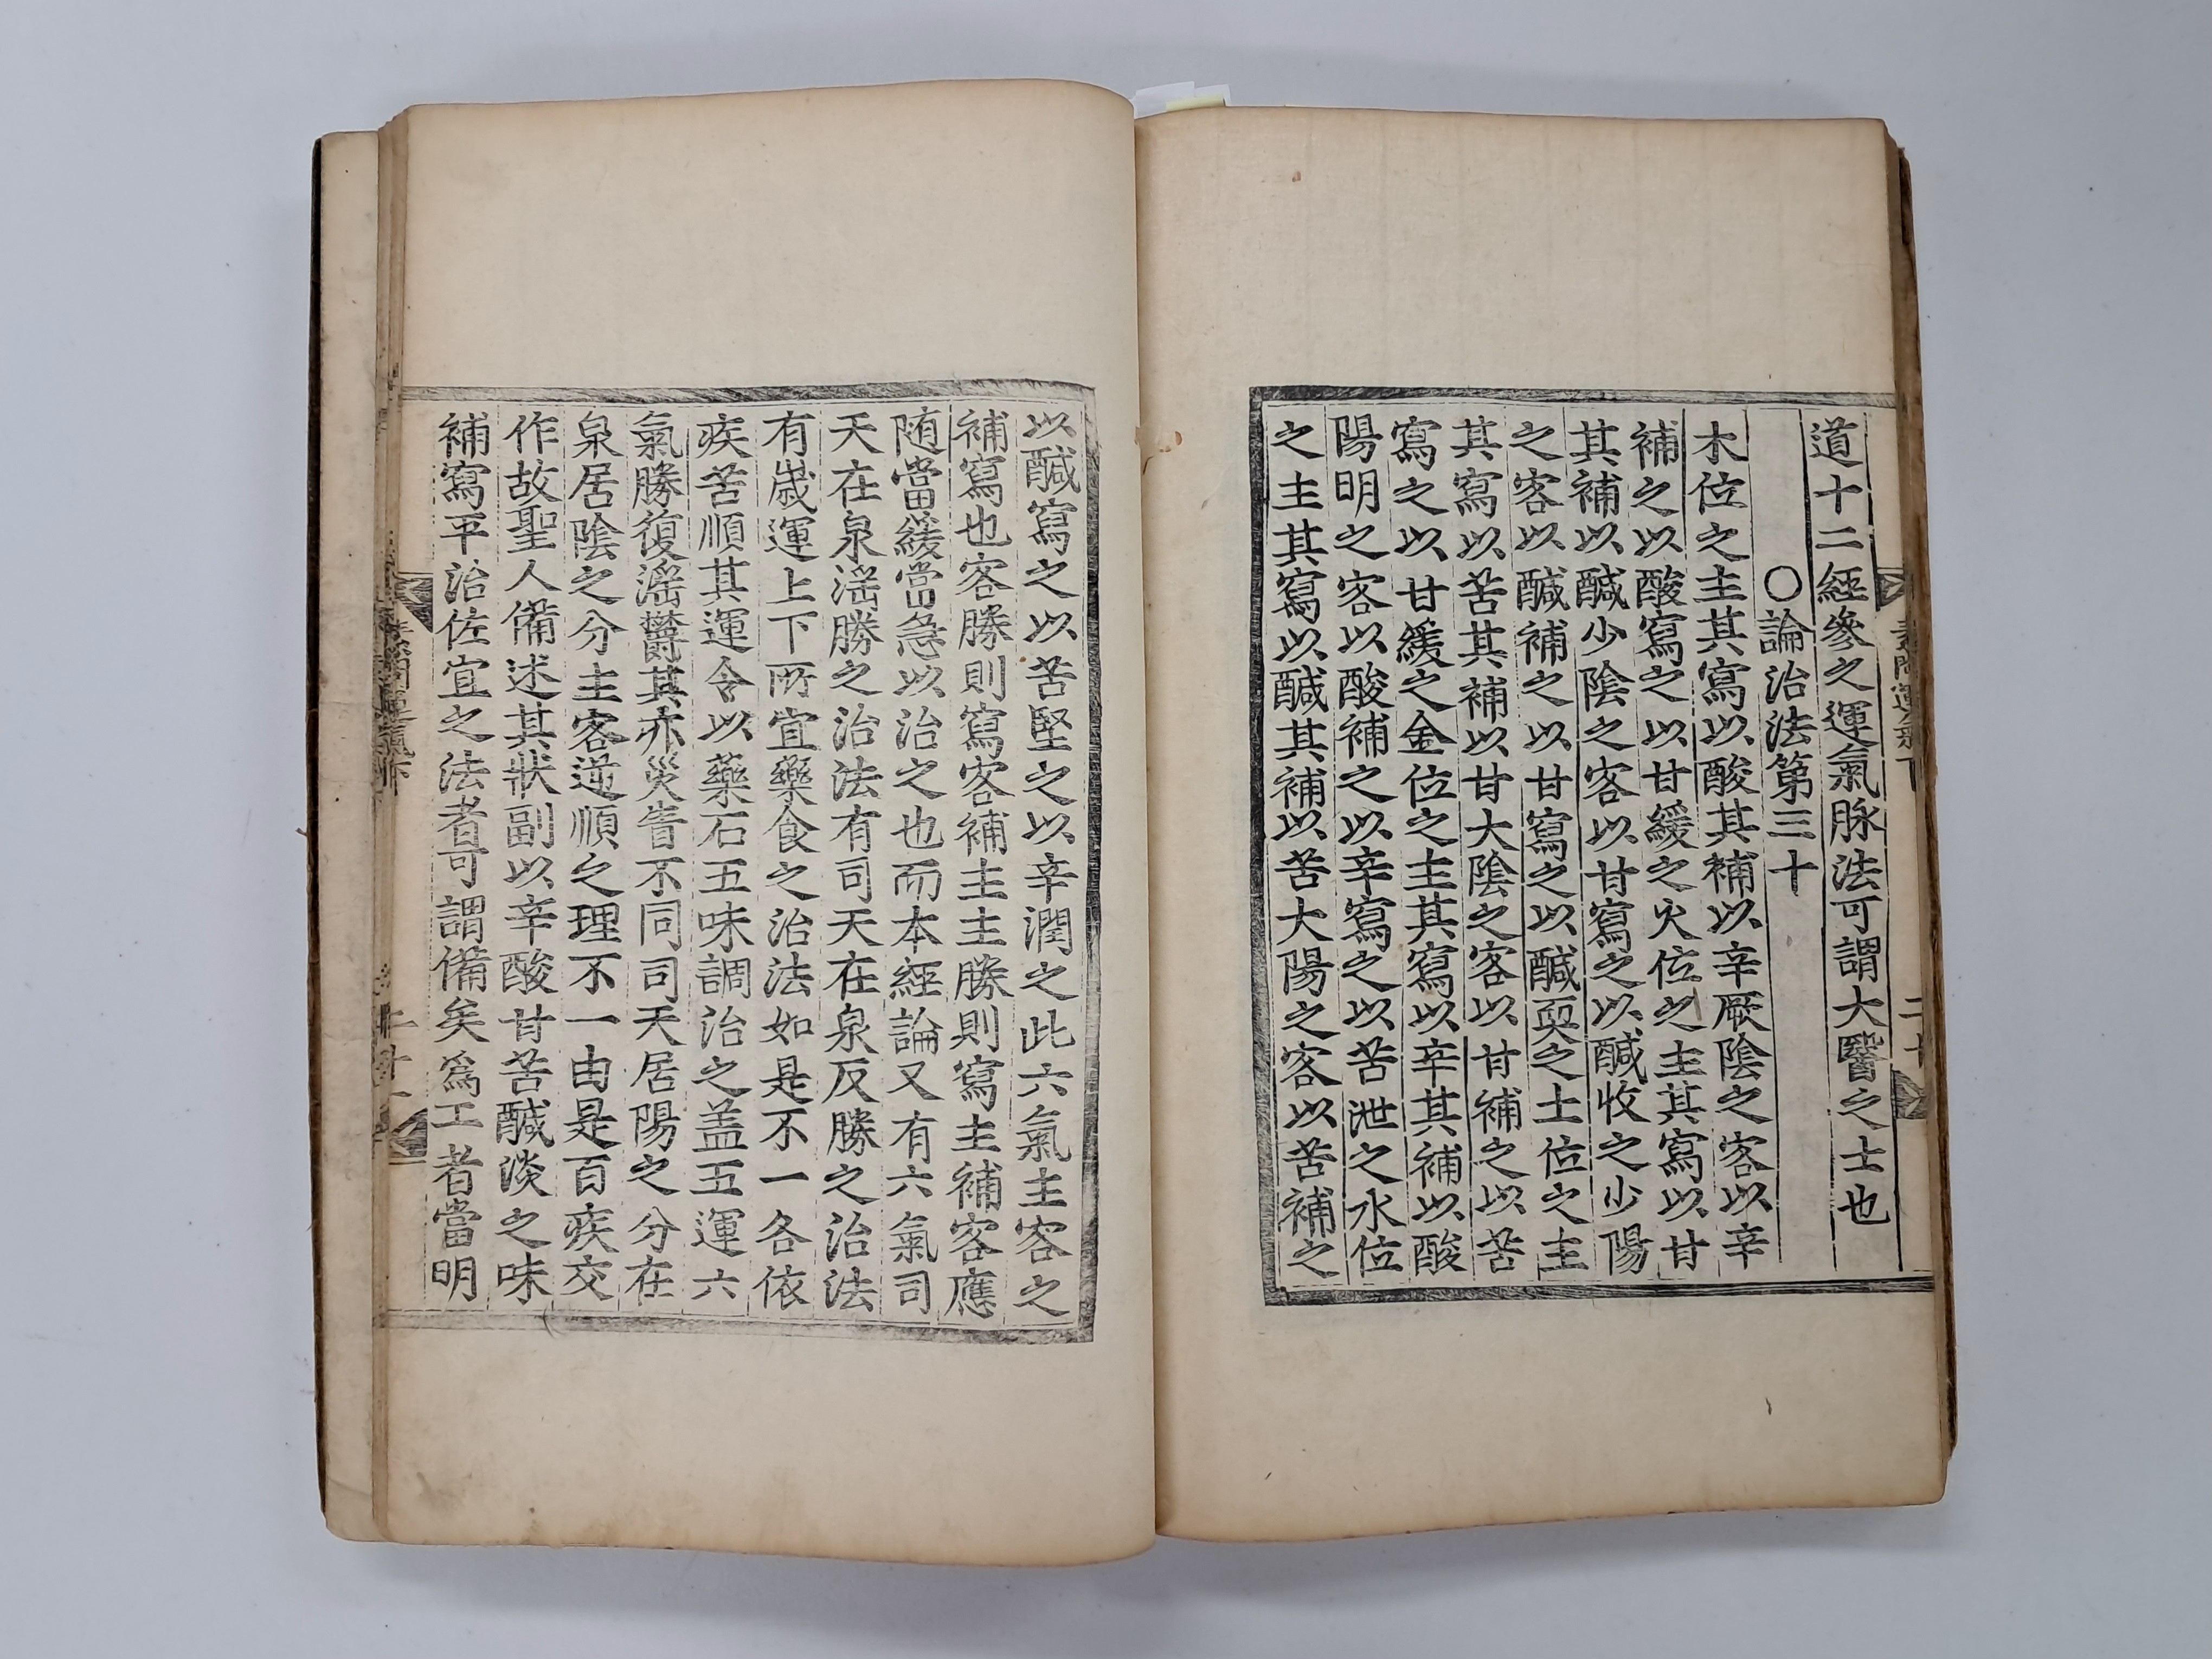 道十二經參之運氣脉法可謂大醫之士也
〇論治法第三十
木位之主其寫以酸其補以辛厥陰之客以辛
補之以酸寫之以甘緩之火位之主其寫以甘
其補以醎少陰之客以甘寫之以醎收之少陽
之客以醎補之以甘寫之以醎耎之土位之主
其寫以苦其補以甘大陰之客以甘補之以苦
寫之以甘緩之金位之主其寫以辛其補以酸
陽明之客以酸補之以辛寫之以苦泄之水位
之主其寫以醎其補以苦大陽之客以苦補之
以醎寫之以苦堅之以辛潤之此六氣主客之
補寫也客勝則寫客補主主勝則寫主補客應
随當緩當急以治之也而本經論又有六氣司
天在泉滛勝之治法有司天在泉反勝之治法
有歲運上下所宜藥食之治法如是不一各依
疾苦順其運令以藥石五味調治之盖五運六
氣勝復滛欝其亦災眚不同司天居陽之分在
泉居陰之分主客逆順之理不一由是百疾交
作故聖人備述其狀副以辛酸甘苦醎淡之味
補寫平治佐宜之法者可謂備矣爲工者當明